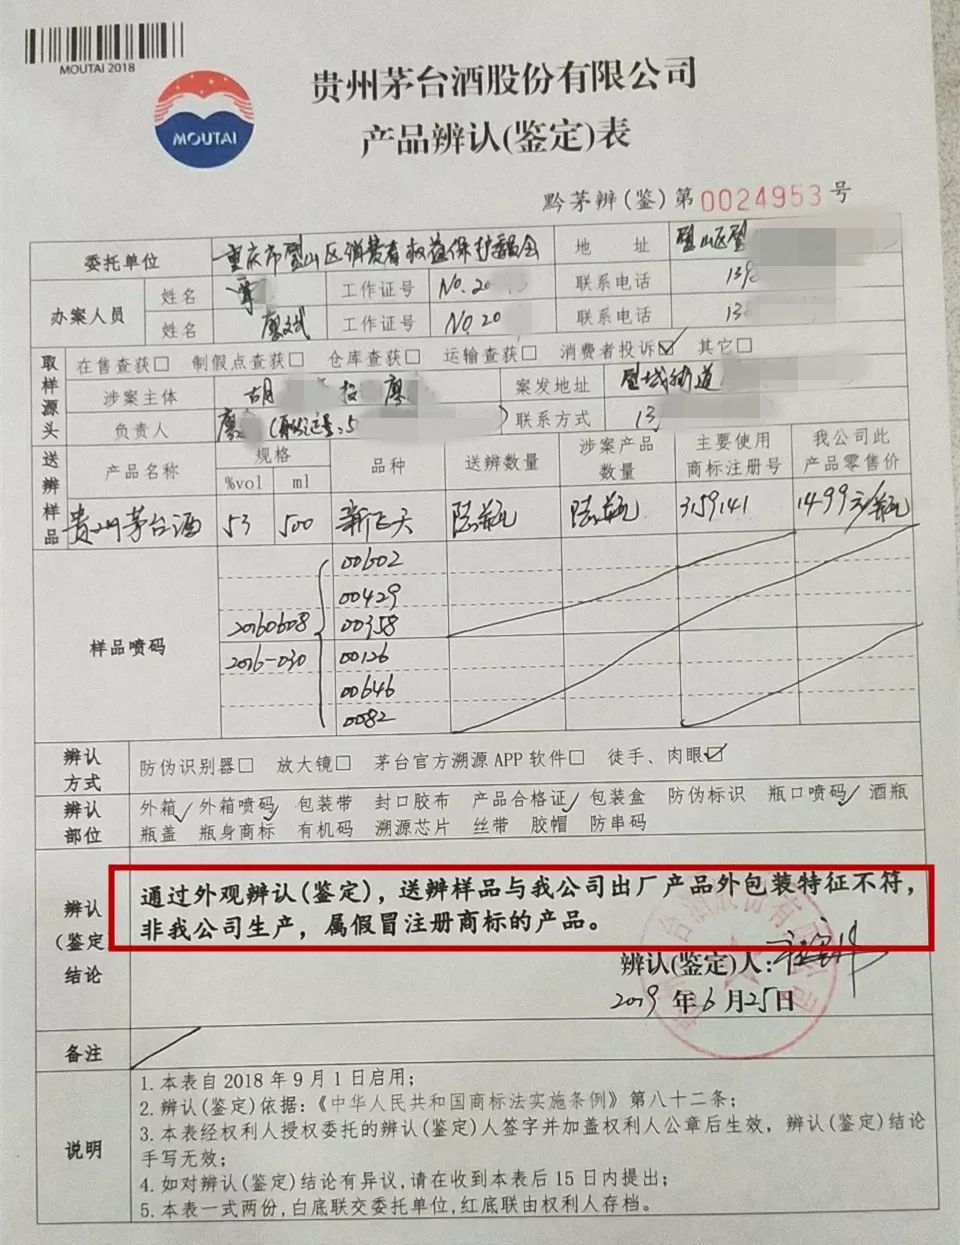 MOUTAI 2018
MOUTAI
贵州茅台酒股份有限公司
产品辨认(鉴定)表
黔茅辨(鉴)第0024953号
委托单位 重庆市璧山区消费者权益保护委员会 地 址 璧山区璧
办案人员 姓名 工作证号 No.20 联系电话 139
姓名 廖文斌 工作证号 No.20 联系电话 138
取样源头 在售查获□ 制假点查获□ 仓库查获□ 运输查获□ 消费者投诉☑ 其它□
涉案主体 胡 投 廖 案发地址 璧城街道
负责人 廖 联系方式 13
送辨样品 产品名称 规格 %vol ml 品种 送辨数量 涉案产品数量 主要使用商标注册号 我公司此产品零售价
贵州茅台酒 53 500 新飞天 陆瓶 陆瓶 3159141 1499元/瓶
样品喷码
20160608
2016-030
00602
00429
00358
00126
00646
0082
辨认方式 防伪识别器□ 放大镜□ 茅台官方溯源APP软件□ 徒手、肉眼☑
辨认部位 外箱✓ 外箱喷码✓ 包装带 封口胶布 产品合格证✓ 包装盒 防伪标识 瓶口喷码✓ 酒瓶
瓶盖 瓶身商标 有机码 溯源芯片 丝带 胶帽 防串码
辨认(鉴定)结论
通过外观辨认(鉴定)，送辨样品与我公司出厂产品外包装特征不符，
非我公司生产，属假冒注册商标的产品。
辨认(鉴定)人:
2019 年 6 月 25 日
备注
说明
1.本表自2018年9月1日启用；
2.辨认(鉴定)依据:《中华人民共和国商标法实施条例》第八十二条；
3.本表经权利人授权委托的辨认(鉴定)人签字并加盖权利人公章后生效，辨认(鉴定)结论
手写无效；
4.如对辨认(鉴定)结论有异议,请在收到本表后15日内提出；
5.本表一式两份,白底联交委托单位,红底联由权利人存档。